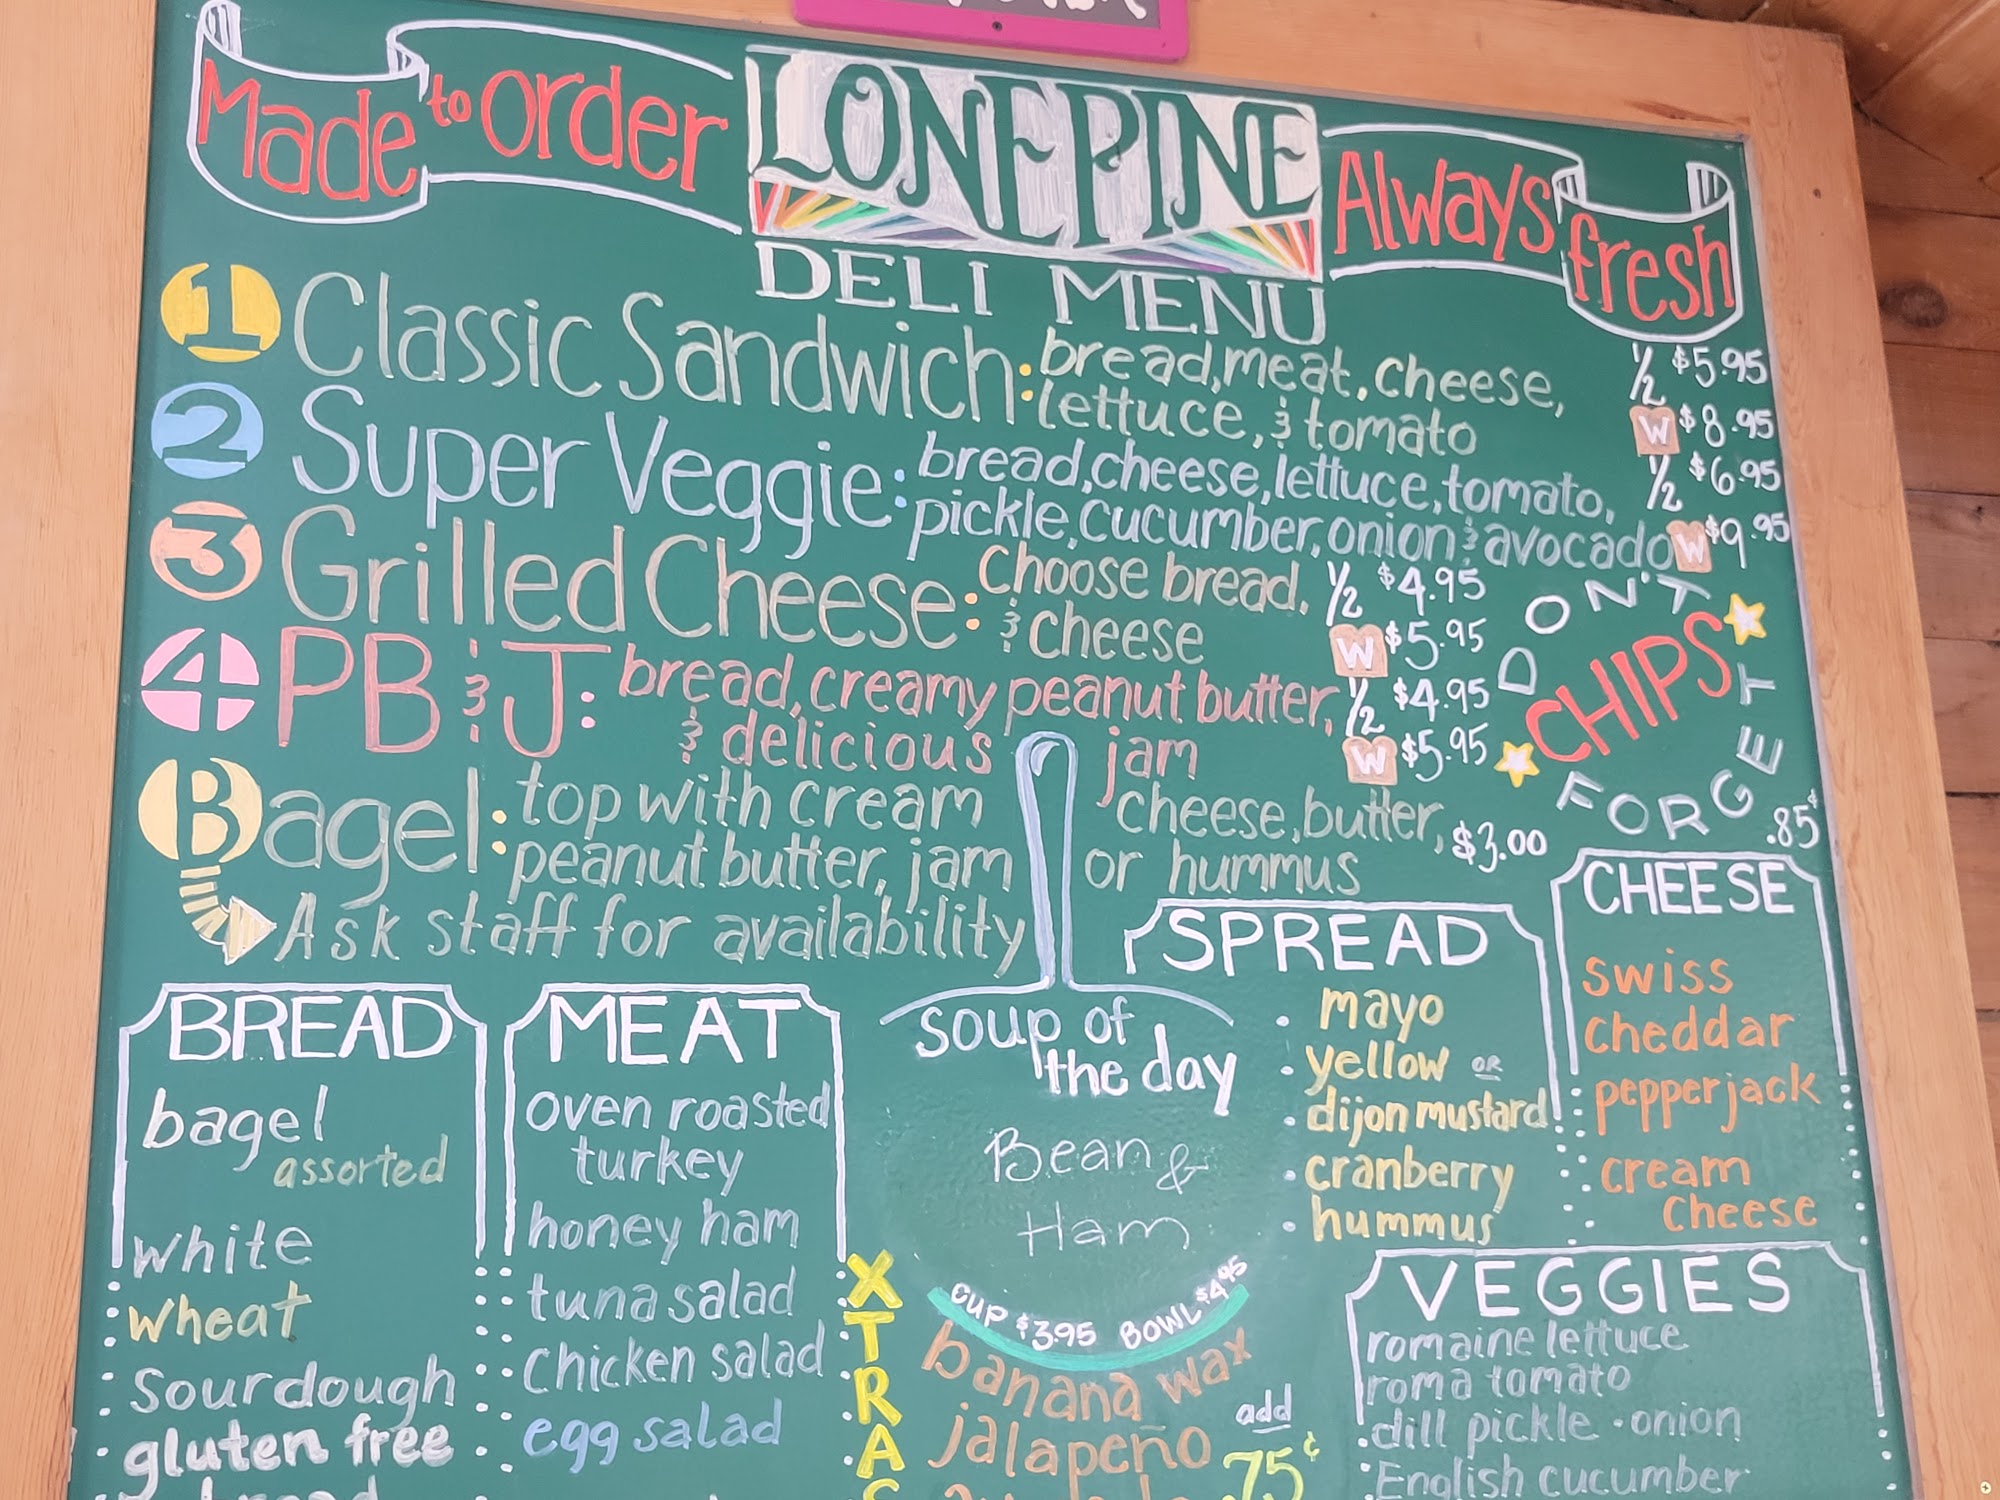 Made to Order
LONE PINE
Always fresh
DELI MENU
1 Classic Sandwich: bread, meat, cheese, 1/2 $5.95
lettuce, & tomato W $8.95
2 Super Veggie: bread, cheese, lettuce, tomato, 1/2 $6.95
pickle, cucumber, onion & avocado W $9.95
3 Grilled Cheese: Choose bread, 1/2 $4.95
& cheese W $5.95
4 PB & J: bread, creamy peanut butter, 1/2 $4.95
& delicious jam W $5.95
DON'T FORGET
CHIPS
.85¢
Bagel: top with cream cheese, butter, $3.00
peanut butter, jam or hummus
Ask staff for availability
BREAD
bagel
assorted
white
wheat
Sourdough
gluten free
MEAT
oven roasted
turkey
honey ham
tuna salad
chicken salad
egg salad
soup of
the day
Bean &
Ham
CUP $3.95 BOWL $4.95
XTRAS
banana wax
jalapeño
add
75¢
SPREAD
mayo
yellow OR
dijon mustard
cranberry
hummus
CHEESE
swiss
cheddar
pepperjack
cream
cheese
VEGGIES
romaine lettuce
roma tomato
dill pickle · onion
English cucumber